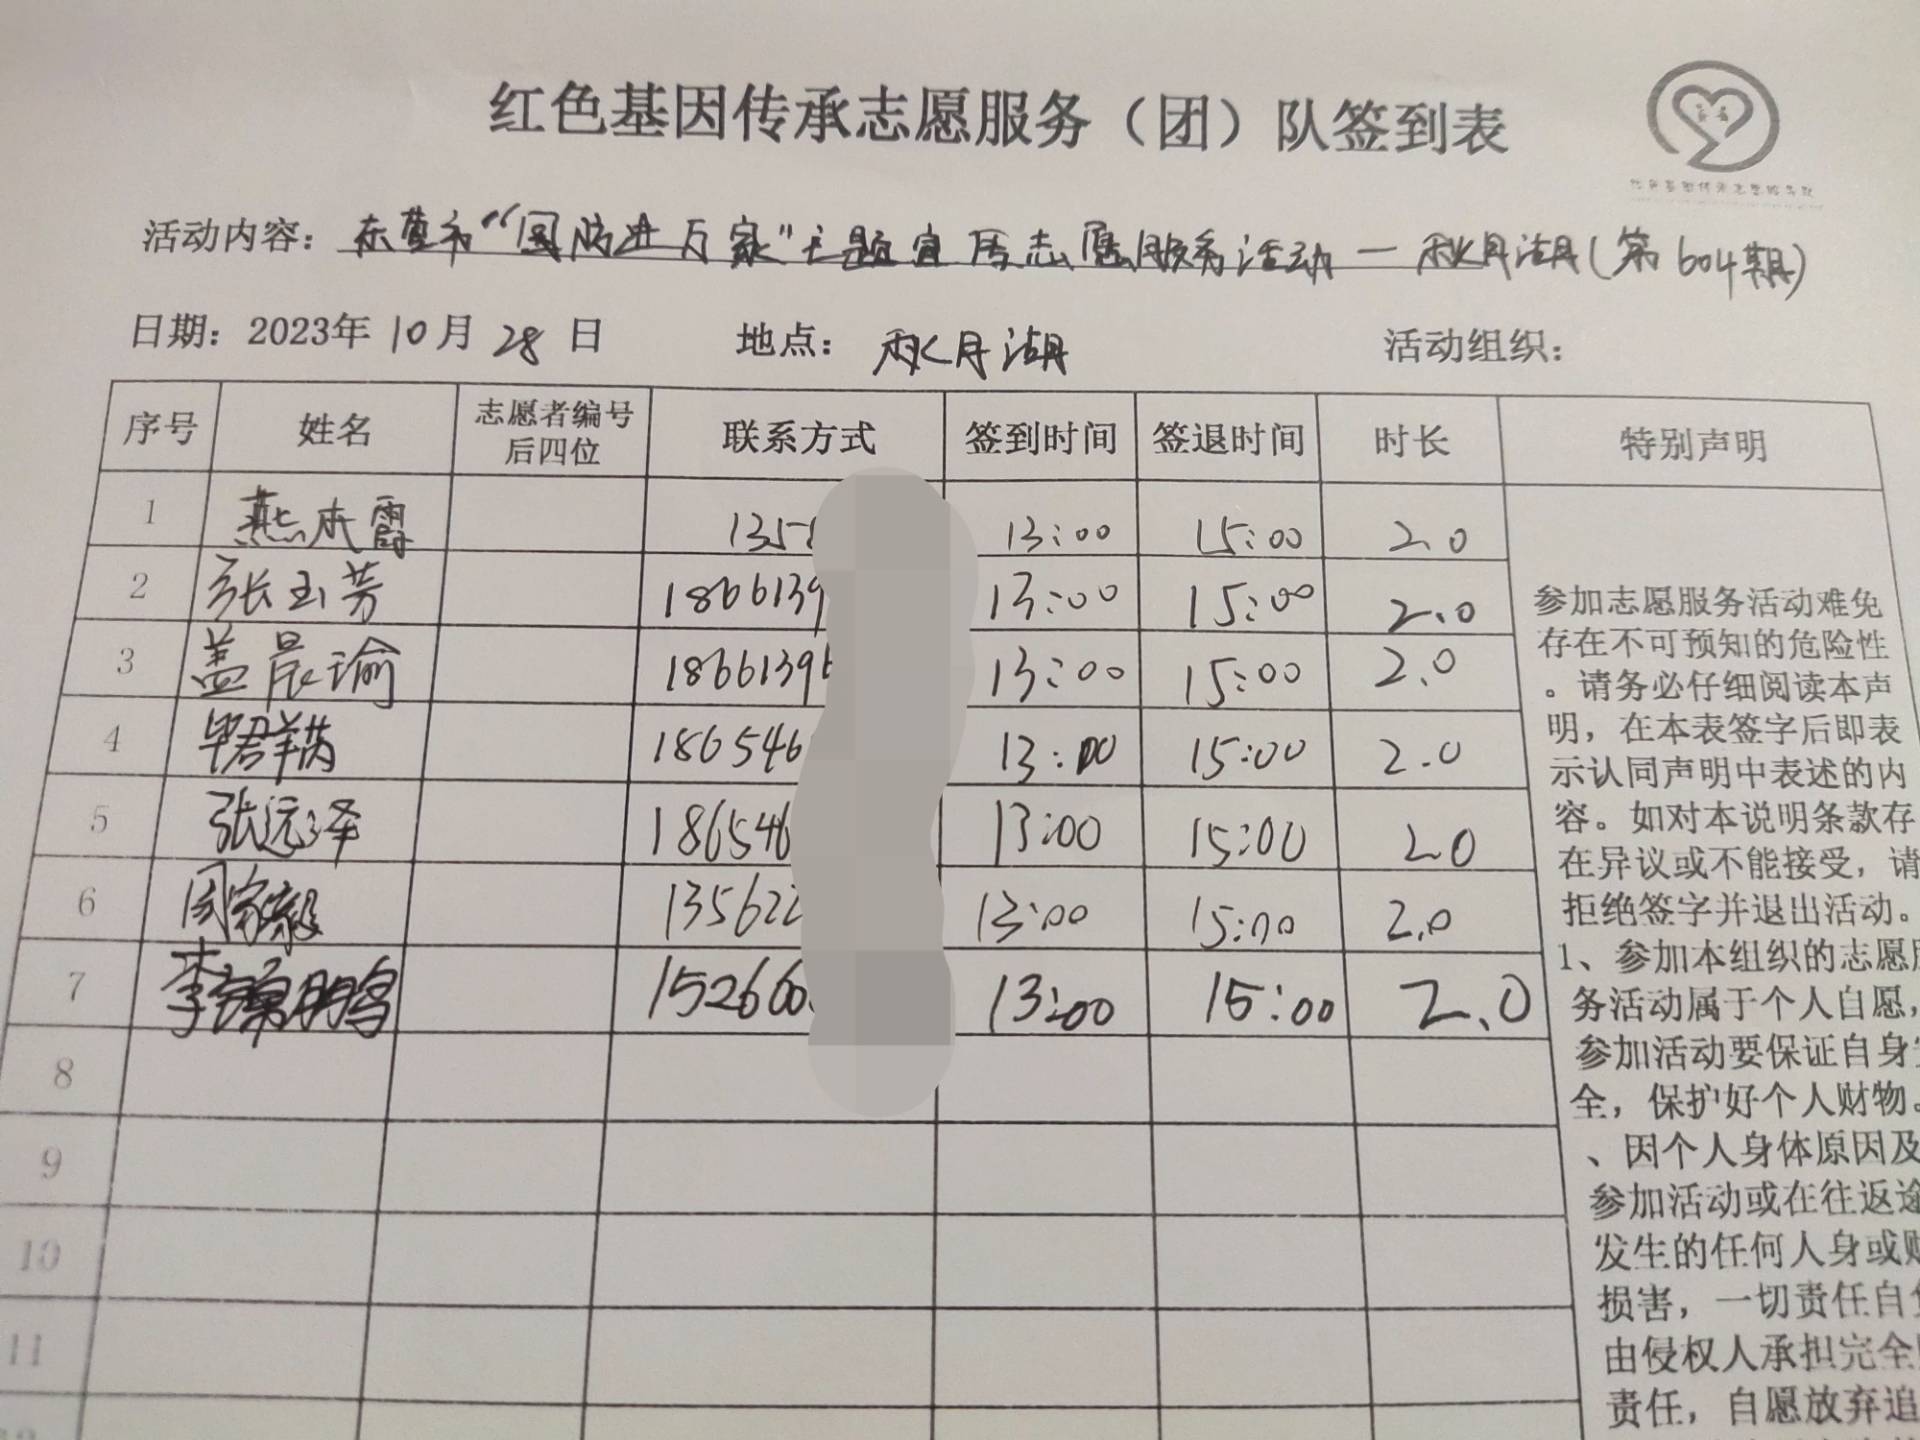 红色基因传承志愿服务（团）队签到表
活动内容：东营市“国防进万家”主题宣传志愿服务活动一秋月湖（第604期）
日期：2023年10月28日 地点：秋月湖 活动组织：
序号 姓名 志愿者编号后四位 联系方式 签到时间 签退时间 时长 特别声明
1 燕木霞 135 13:00 15:00 2.0
2 张玉芳 1866139 13:00 15:00 2.0
3 盖晨瑜 1866139 13:00 15:00 2.0
4 186546 13:00 15:00 2.0
5 张远泽 186546 13:00 15:00 2.0
6 周家毅 135622 13:00 15:00 2.0
7 李 152660 13:00 15:00 2.0
8
9
10
11
参加志愿服务活动难免
存在不可预知的危险性
。请务必仔细阅读本声
明，在本表签字后即表
示认同声明中表述的内
容。如对本说明条款存
在异议或不能接受，请
拒绝签字并退出活动。
1、参加本组织的志愿
务活动属于个人自愿，
参加活动要保证自身
全，保护好个人财物。
、因个人身体原因及
参加活动或在往返途
发生的任何人身或财
损害，一切责任自负
由侵权人承担完全
责任，自愿放弃追